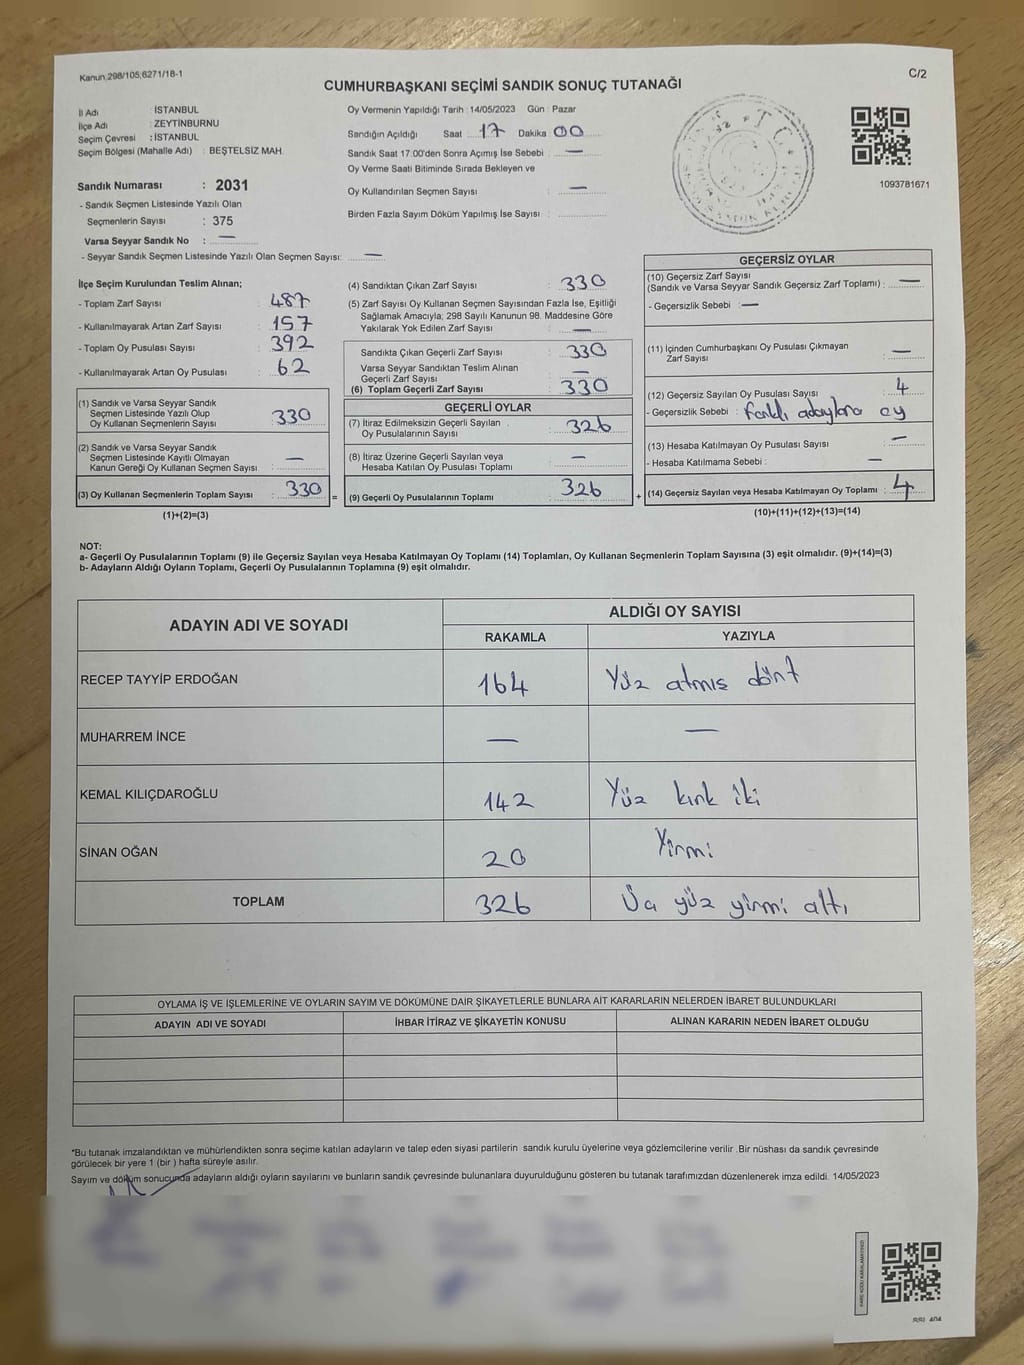 Kanun:298/105,6271/18-1
C/2
CUMHURBAŞKANI SEÇİMİ SANDIK SONUÇ TUTANAĞI
İl Adı : İSTANBUL
İlçe Adı : ZEYTİNBURNU
Seçim Çevresi : İSTANBUL
Seçim Bölgesi (Mahalle Adı) : BEŞTELSİZ MAH.
Sandık Numarası : 2031
- Sandık Seçmen Listesinde Yazılı Olan
Seçmenlerin Sayısı : 375
Varsa Seyyar Sandık No : —
- Seyyar Sandık Seçmen Listesinde Yazılı Olan Seçmen Sayısı: —
Oy Vermenin Yapıldığı Tarih : 14/05/2023 Gün : Pazar
Sandığın Açıldığı Saat 17 Dakika 00
Sandık Saat 17:00'den Sonra Açımış İse Sebebi : —
Oy Verme Saati Bitiminde Sırada Bekleyen ve
Oy Kullandırılan Seçmen Sayısı : —
Birden Fazla Sayım Döküm Yapılmış İse Sayısı :
1093781671
İlçe Seçim Kurulundan Teslim Alınan;
- Toplam Zarf Sayısı : 487
- Kullanılmayarak Artan Zarf Sayısı : 157
- Toplam Oy Pusulası Sayısı : 392
- Kullanılmayarak Artan Oy Pusulası : 62
(1) Sandık ve Varsa Seyyar Sandık
Seçmen Listesinde Yazılı Olup
Oy Kullanan Seçmenlerin Sayısı : 330
(2) Sandık ve Varsa Seyyar Sandık
Seçmen Listesinde Kayıtlı Olmayan
Kanun Gereği Oy Kullanan Seçmen Sayısı : —
(3) Oy Kullanan Seçmenlerin Toplam Sayısı : 330
(1)+(2)=(3)
=
(4) Sandıktan Çıkan Zarf Sayısı : 330
(5) Zarf Sayısı Oy Kullanan Seçmen Sayısından Fazla İse, Eşitliği
Sağlamak Amacıyla; 298 Sayılı Kanunun 98. Maddesine Göre
Yakılarak Yok Edilen Zarf Sayısı : —
Sandıkta Çıkan Geçerli Zarf Sayısı : 330
Varsa Seyyar Sandıktan Teslim Alınan
Geçerli Zarf Sayısı : —
(6) Toplam Geçerli Zarf Sayısı : 330
GEÇERLİ OYLAR
(7) İtiraz Edilmeksizin Geçerli Sayılan
Oy Pusulalarının Sayısı : 326
(8) İtiraz Üzerine Geçerli Sayılan veya
Hesaba Katılan Oy Pusulası Toplamı : —
(9) Geçerli Oy Pusulalarının Toplamı : 326
+
GEÇERSİZ OYLAR
(10) Geçersiz Zarf Sayısı
(Sandık ve Varsa Seyyar Sandık Geçersiz Zarf Toplamı) : —
- Geçersizlik Sebebi : —
(11) İçinden Cumhurbaşkanı Oy Pusulası Çıkmayan
Zarf Sayısı : —
(12) Geçersiz Sayılan Oy Pusulası Sayısı : 4
- Geçersizlik Sebebi : farklı adaylara oy
(13) Hesaba Katılmayan Oy Pusulası Sayısı : —
- Hesaba Katılmama Sebebi : —
(14) Geçersiz Sayılan veya Hesaba Katılmayan Oy Toplamı : 4
(10)+(11)+(12)+(13)=(14)
NOT:
a- Geçerli Oy Pusulalarının Toplamı (9) ile Geçersiz Sayılan veya Hesaba Katılmayan Oy Toplamı (14) Toplamları, Oy Kullanan Seçmenlerin Toplam Sayısına (3) eşit olmalıdır. (9)+(14)=(3)
b- Adayların Aldığı Oyların Toplamı, Geçerli Oy Pusulalarının Toplamına (9) eşit olmalıdır.
ADAYIN ADI VE SOYADI
ALDIĞI OY SAYISI
RAKAMLA YAZIYLA
RECEP TAYYİP ERDOĞAN 164 Yüz atmış dört
MUHARREM İNCE — —
KEMAL KILIÇDAROĞLU 142 Yüz kırk iki
SİNAN OĞAN 20 Yirmi
TOPLAM 326 Üç yüz yirmi altı
OYLAMA İŞ VE İŞLEMLERİNE VE OYLARIN SAYIM VE DÖKÜMÜNE DAİR ŞİKAYETLERLE BUNLARA AİT KARARLARIN NELERDEN İBARET BULUNDUKLARI
ADAYIN ADI VE SOYADI İHBAR İTİRAZ VE ŞİKAYETİN KONUSU ALINAN KARARIN NEDEN İBARET OLDUĞU
*Bu tutanak imzalandıktan ve mühürlendikten sonra seçime katılan adayların ve talep eden siyasi partilerin sandık kurulu üyelerine veya gözlemcilerine verilir .Bir nüshası da sandık çevresinde
görülecek bir yere 1 (bir ) hafta süreyle asılır.
Sayım ve döküm sonucunda adayların aldığı oyların sayılarını ve bunların sandık çevresinde bulunanlara duyurulduğunu gösteren bu tutanak tarafımızdan düzenlenerek imza edildi. 14/05/2023
KARE KODU KARALAMAYINIZ!